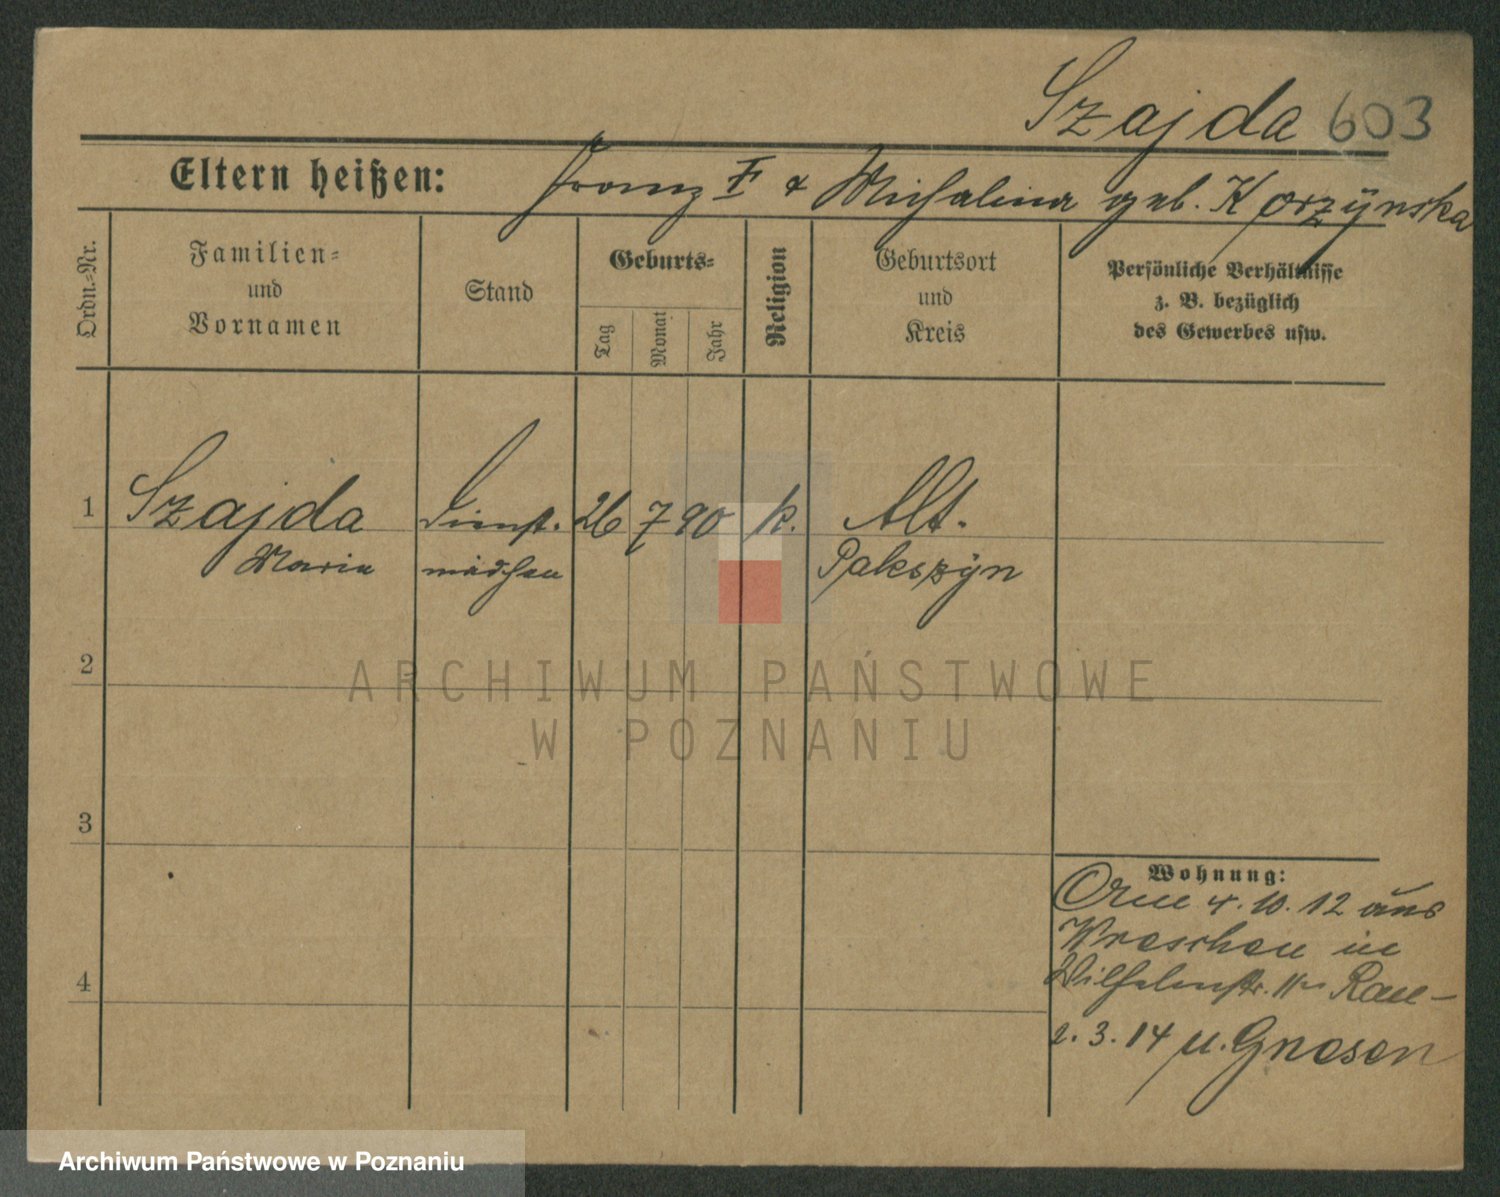 Szajda 603
Eltern heißen: Franz & Michalina geb. Korzÿnska
Ordn.-Nr.
Familien-
und
Vornamen
Stand
Geburts-
Tag
Monat
Jahr
Religion
Geburtsort
und
Kreis
Persönliche Verhältnisse
z. B. bezüglich
des Gewerbes usw.
1 Szajda Dienst. 26 7 90 k. Alt.
Maria mädchen Pakszÿn
ARCHIWUM PAŃSTWOWE
W POZNANIU
2
3
4
Wohnung:
4. 10. 12 aus
Wreschen in
Wilhelmstr. 11
2. 3. 14 n. Gnesen
Archiwum Państwowe w Poznaniu